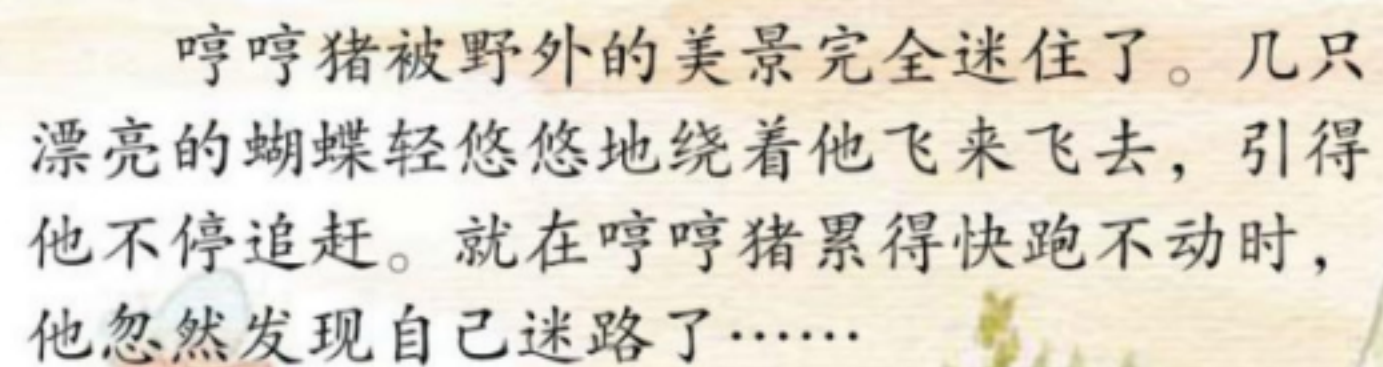 哼哼猪被野外的美景完全迷住了。几只
漂亮的蝴蝶轻悠悠地绕着他飞来飞去，引得
他不停追赶。就在哼哼猪累得快跑不动时，
他忽然发现自己迷路了……